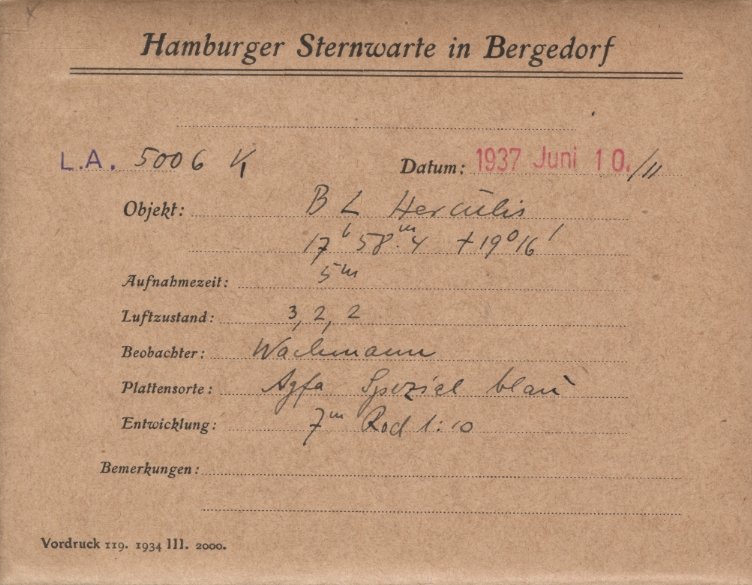 Hamburger Sternwarte in Bergedorf
L.A. 5006 Datum: 1937 Juni 10./11
Objekt: BL Herculis
17h 58m.4 +19° 16'
Aufnahmezeit: 5m
Luftzustand: 3, 2, 2
Beobachter: Wachmann
Plattensorte: Agfa Spezial blau
Entwicklung: 7m Rod 1:10
Bemerkungen:
Vordruck 119. 1934 III. 2000.